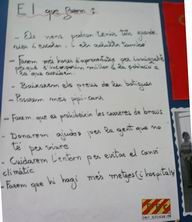 El que farem :
- Els nens podran tenir tots ajuda,
nins d'escoles i els adults també
- Farem més hores d'aprenentatge per immigrants
perquè s'incorporin millor a la població a
la que arriben.
- Baixarem els preus de les botigues
- Posarem més papi-cans.
- Farem que es prohibeixin les curreres de braus
- Donarem ajudes per la gent que no
té per viure
- Cuidarem l'entorn per evitar el canvi
climàtic
- Farem que hi hagi més metges i hospitals